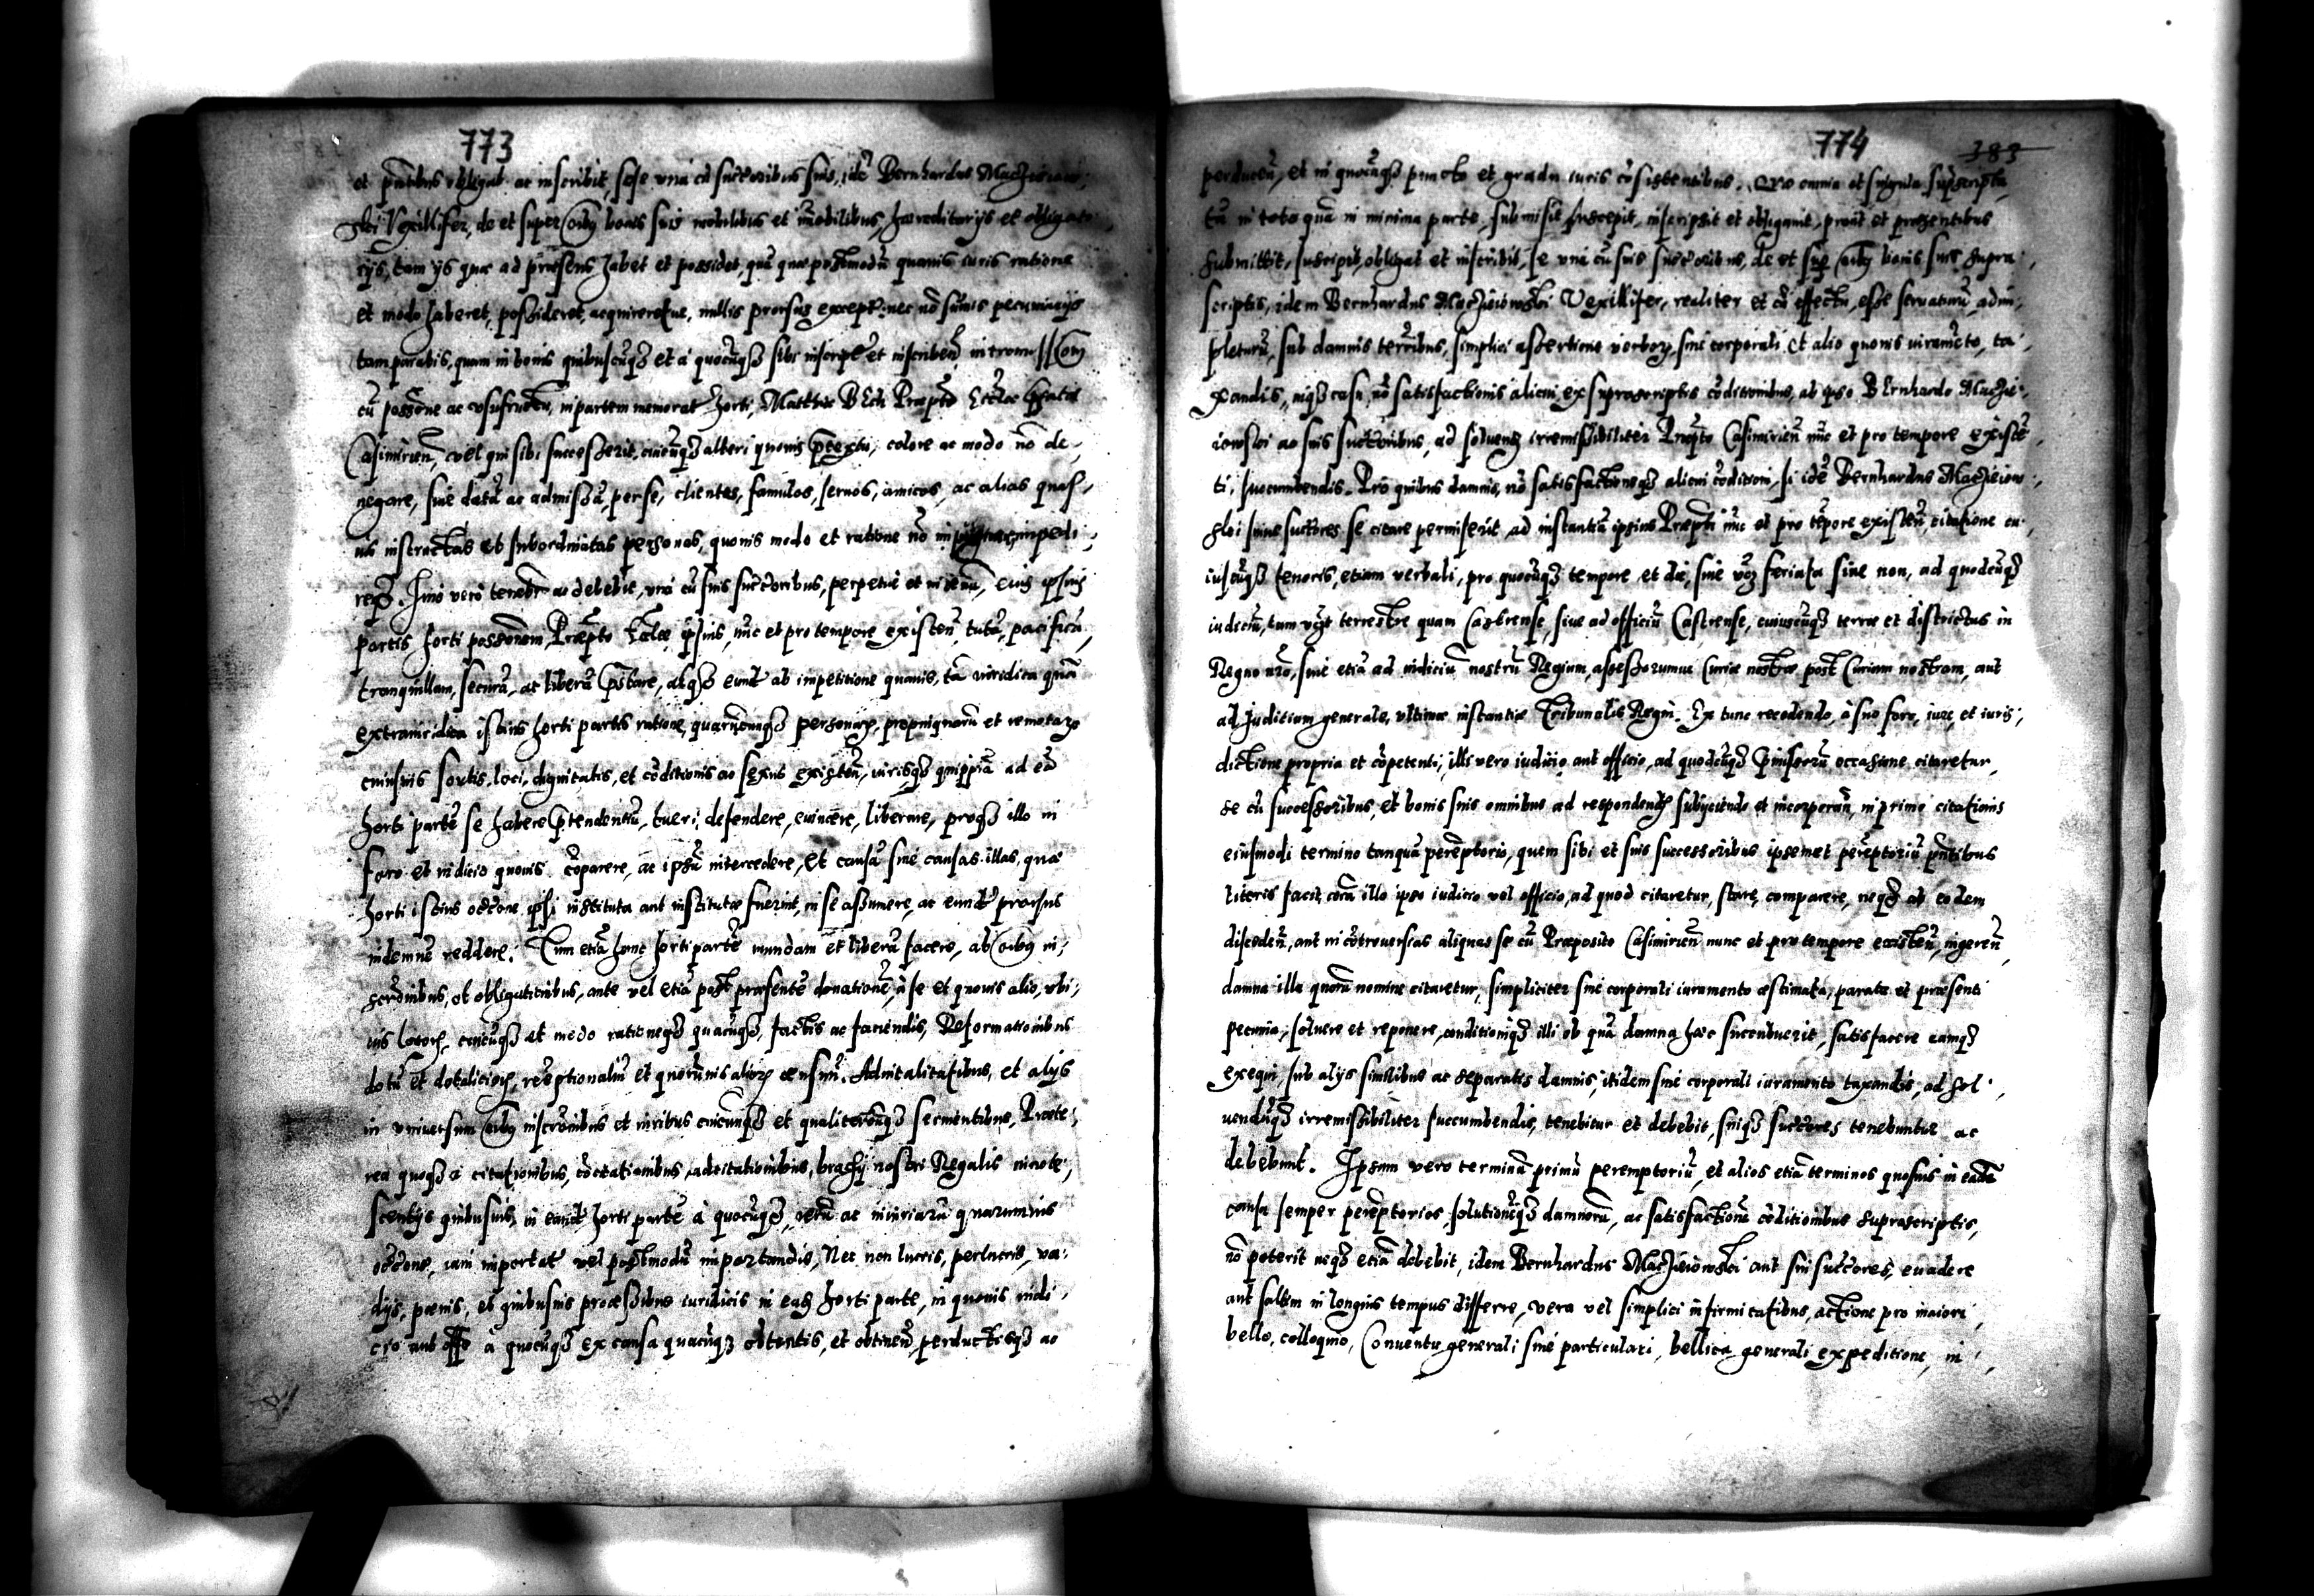 773
et pñtibus obligat ac inscribit sese vna cũ succoribus suis, idẽ Bernhardus Macieiowi,
ski Vexillifer, de et super oibus bonis suis mobilibus et imobilibus, hæreditarijs et obligato
rijs, tam ijs quæ ad præsens habet et possidet, quã quæ postmodũ quouis iuris ratione
et modo haberet, possideret, acquireretue, nullis prorsus except: nec nõ sumis pecuniarijs
tam paratis, quam in bonis quibuscũqз et a quocũqз sibi inscript et inscribeñ
cũ possone ac vsufructu, in partem memorat horti, Matthiæ Præpto Ecclæ
Casimirieñ, vel qui sibi successerit, cuicũqз alteri quouis prætextu, colore ac modo nõ de,
negare, siue datã ac admissã, per se, clientes, famulos, seruos, amicos, ac alias quas,
uis instructas et subordinatas personas, quouis modo et ratione nõ impedi,
reqз. Imo vero tenebr ac debebit, vna cũ suis succoribus, perpetue et in æuũ, eius ipsius
partis horti possonem Præpto Ecclæ ipsius, nũc et pro tempore existeñ, tutã, pacificã,
tranquillam, securã, ac liberã præstare, atqз eund ab impetitione quauis, tã iuridica quã
extraiuridica istius horti partis ratione, quarũcunqз personarз, propinquarũ et remotarз
cuiusuis sortis, loci, dignitatis, et cõditionis ac sexus existeñ, iurisqз quippiã ad eã
horti partẽ se habere prætendentiũ, tueri, defendere, euincere, liberare, proqз illo in
foro et iudicio quouis cõparere, ac ipsũ intercedere, et causã siue causas illas, quæ
horti istius occone ipsi instituta aut institutæ fuerint, in se assumere, ac eund prorsus
indemnẽ reddere. Tum etiã hanc horti partẽ mundam et liberã facere, ab oibus in,
scrõnibus, et obligationibus, ante vel etiã post præsentẽ donationẽ, à se et quouis alio, vbi,
uis locorз, cuicũqз et modo rationeqз quacũqз, factis ac faciendis, Reformationibus
dotũ et dotaliciorз, reẽptionaliũ et quorũuis aliorз censuũ. Aduitalitatibus, et alijs
in vniuersum oibus inscrõnibus et iuribus cuicunqз et qualitercũqз seruientibus, Præte,
rea quoqз a citationibus, cõcitationibus, adcitationibus, brachij nostri Regalis inuote,
scentijs quibusuis, in eand horti partẽ à quocũqз, rerũ ac iniuriarũ quarumuis
occone, iam importat vel postmodũ importandis, Nec non lucris, perlucris, va,
dijs, pœnis, et quibusuis processibus iuridicis in eaз horti parte, in quouis iudi,
cio aut offo à quocũqз ex causa quacũqз obtentis, et obtineñ, perductisqз ac
774 383
perduceñ, et in quocũqз puncto et gradu iuris cõsistentibus. Quo omnia et singula supscripta,
tã in toto quã in minima parte, submisit, suscepit, inscripsit et obligauit, prout et præsentibus
submittit, suscipit, obligat et inscribit, se vna cũ suis succoribus, de et sup oibus bonis suis supra,
scriptis, idem Bernhardus Macieiowski Vexillifer, realiter et cũ effectu, esse seruaturũ, adim,
pleturũ, sub damnis terribus, simplici assertione verborз, sine corporali et alio quouis iuramẽto, ta,
xandis, inqз casu, nõ satisfactionis alicui ex suprascriptis cõditionibus, ab ipso Bernhardo Macie,
iowski ac suis succoribus, ad soluenз irremissibiliter Præpto Casimirieñ nũc et pro tempore existẽ,
ti, succumbendis. Pro quibus damnis, nõ satisfactioneqз alicui cõditioni, si idẽ Bernhardus Macieiow,
ski siue succores se citare permiserit, ad instantiã ipsius Præpti nũc et pro tẽpore existeñ, citatione cu,
iuscũqз tenoris, etiam verbali, pro quocũqз tempore, et die, siue feriata siue non, ad quodcũqз
iudiciũ, tum terrestre quam Castrense, siue ad officiũ Castrense, cuiuscũqз terræ et districtus in
Regno nro, siue etiã ad iudiciũ nostrũ Regium, assessorumue Curiæ nostræ, post Curiam nostram, aut
ad Juditium generale, vltimæ instantiæ Tribunalis Regni. Ex tunc recedendo, à suo foro, iure, et iuris,
dictione propria et cõpetenti, illi vero iudicio aut officio, ad quodcũqз præmissorũ occasione citaretur,
se cũ successoribus, et bonis suis omnibus ad respondendз subijciendo et incorporañ, in primo citationis
eiusmodi termino tanquã perẽptorio, quem sibi et suis successoribus ipsemet perẽptoriũ pñtibus
literis facit, corã illo ipso iudicio vel officio, ad quod citaretur, stare, comparere, neqз ab eodem
discedeñ, aut in cõtrouersias aliquas se cũ Præposito Casimirieñ nunc et pro tempore existeñ, ingereñ,
damna illa quorũ nomine citaretur, simpliciter sine corporali iuramento æstimata, parata et præsenti
pecunia, soluere et reponere, conditioniqз illi ob quã damna hæc sucubuerit, satisfacere eamqз
exequi, sub alijs similibus ac separatis damnis, itidem sine corporali iuramento taxandis, ad sol,
uendũqз irremissibiliter succumbendis, tenebitur et debebit, suiqз succores tenebuntur ac
debebunt. Ipsum vero terminũ primũ peremptoriũ, et alios etiã terminos quosuis in eadẽ
causa semper perẽptorios, solutionẽqз damnorũ, ac satisfactionẽ cõditionibus suprascriptis,
nõ poterit neqз etiã debebit, idem Bernhardus Macieiowski aut sui succores, euadere
aut saltim in longius tempus differre, vera vel simplici infirmitatibus, actione pro maiori,
bello, colloquio, Conuentu generali siue particulari, bellica generali expeditione, in,